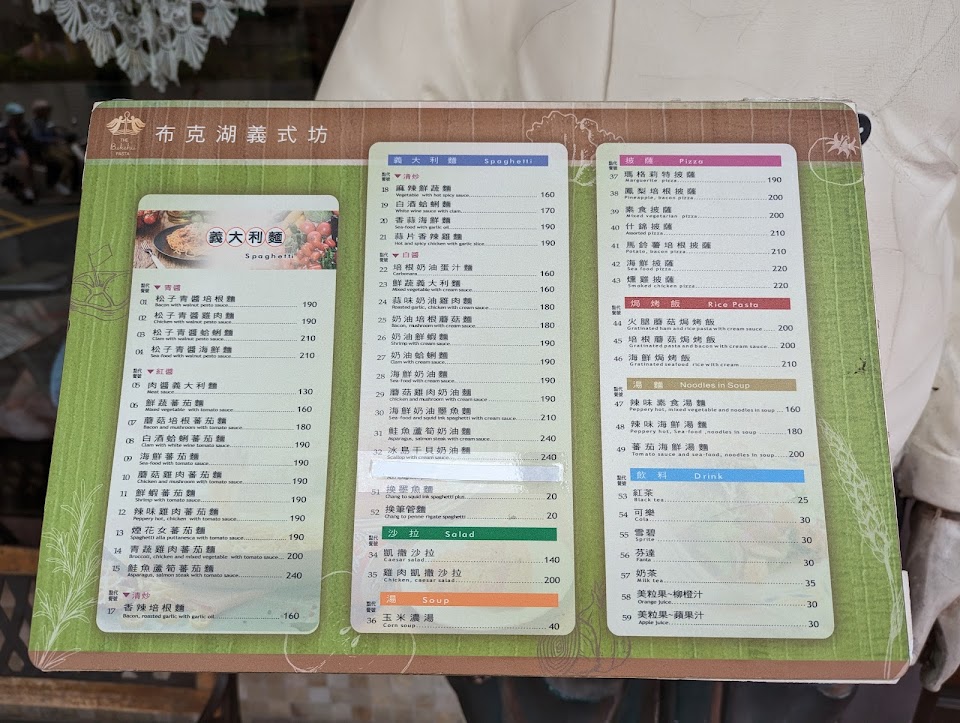 布克湖義式坊
THE
PASTA
義大利麵
Spaghetti
點代餐號
▼青醬
01 松子青醬培根麵
Bacon with walnut pesto sauce 190
02 松子青醬雞肉麵
Chicken with walnut pesto sauce 190
03 松子青醬蛤蜊麵
Clam with walnut pesto sauce 210
04 松子青醬海鮮麵
Sea-food with walnut pesto sauce 210
點代餐號
▼紅醬
05 肉醬義大利麵
Meat sauce 130
06 鮮蔬蕃茄麵
Mixed vegetable with tomato sauce 160
07 蘑菇培根蕃茄麵
Bacon and mushroom with tomato sauce 180
08 白酒蛤蜊蕃茄麵
Clam with white wine tomato sauce 190
09 海鮮蕃茄麵
Sea-food with tomato sauce 190
10 蘑菇雞肉蕃茄麵
Chicken and mushroom with tomato sauce 190
11 鮮蝦蕃茄麵
Shrimp with tomato sauce 190
12 辣味雞肉蕃茄麵
Peppery hot, chicken with tomato sauce 190
13 煙花女蕃茄麵
Spaghetti alla puttanesca with tomato sauce 190
14 青蔬雞肉蕃茄麵
Broccoli, chicken and mixed vegetable with tomato sauce 200
15 鮭魚蘆筍蕃茄麵
Asparagus, salmon steak with tomato sauce 240
點代餐號
▼清炒
17 香辣培根麵
Bacon, roasted garlic with garlic oil 160
義大利麵 Spaghetti
點代餐號
▼清炒
18 麻辣鮮蔬麵
Vegetable with hot spicy sauce 160
19 白酒蛤蜊麵
White wine sauce with clam 170
20 香蒜海鮮麵
Sea-food with garlic oil 190
21 蒜片香辣雞麵
Hot and spicy chicken with garlic slice 190
點代餐號
▼白醬
22 培根奶油蛋汁麵
Carbonara 160
23 鮮蔬義大利麵
Mixed vegetable with cream sauce 160
24 蒜味奶油雞肉麵
Roasted garlic, chicken with cream sauce 180
25 奶油培根蘑菇麵
Bacon, mushroom with cream sauce 180
26 奶油鮮蝦麵
Shrimp with cream sauce 190
27 奶油蛤蜊麵
Clam with cream sauce 190
28 海鮮奶油麵
Sea-food with cream sauce 190
29 蘑菇雞肉奶油麵
Chicken and mushroom with cream sauce 190
30 海鮮奶油墨魚麵
Sea-food and squid ink spaghetti with cream sauce 210
31 鮭魚蘆筍奶油麵
Asparagus, salmon steak with cream sauce 240
32 冰島干貝奶油麵
Scallop with cream sauce 240
51 換墨魚麵
Chang to squid ink spaghetti plus 20
52 換筆管麵
Chang to penne rigate spaghetti 20
沙拉 Salad
點代餐號
34 凱撒沙拉
Caesar salad 140
35 雞肉凱撒沙拉
Chicken, caesar salad 200
湯 Soup
點代餐號
36 玉米濃湯
Corn soup 40
披薩 Pizza
點代餐號
37 瑪格莉特披薩
Marguerite pizza 190
38 鳳梨培根披薩
Pineapple, bacon pizza 200
39 素食披薩
Mixed vegetarian pizza 200
40 什錦披薩
Assorted pizza 210
41 馬鈴薯培根披薩
Potato, bacon pizza 210
42 海鮮披薩
Sea food pizza 220
43 燻雞披薩
Smoked chicken pizza 220
焗烤飯 Rice Pasta
點代餐號
44 火腿蘑菇焗烤飯
Gratinated ham and rice pasta with cream sauce 200
45 培根蘑菇焗烤飯
Gratinated pasta and bacon with cream sauce 200
46 海鮮焗烤飯
Gratinated seafood rice with cream 210
湯麵 Noodles in Soup
點代餐號
47 辣味素食湯麵
Peppery hot, mixed vegetable and noodles in soup 160
48 辣味海鮮湯麵
Peppery hot, Sea-food ,noodles in soup 180
49 蕃茄海鮮湯麵
Tomato sauce and sea-food, noodles in soup 200
飲料 Drink
點代餐號
53 紅茶
Black tea 25
54 可樂
Cola 30
55 雪碧
Sprite 30
56 芬達
Fanta 30
57 奶茶
Milk tea 35
58 美粒果~柳橙汁
Orange juice 30
59 美粒果~蘋果汁
Apple juice 30